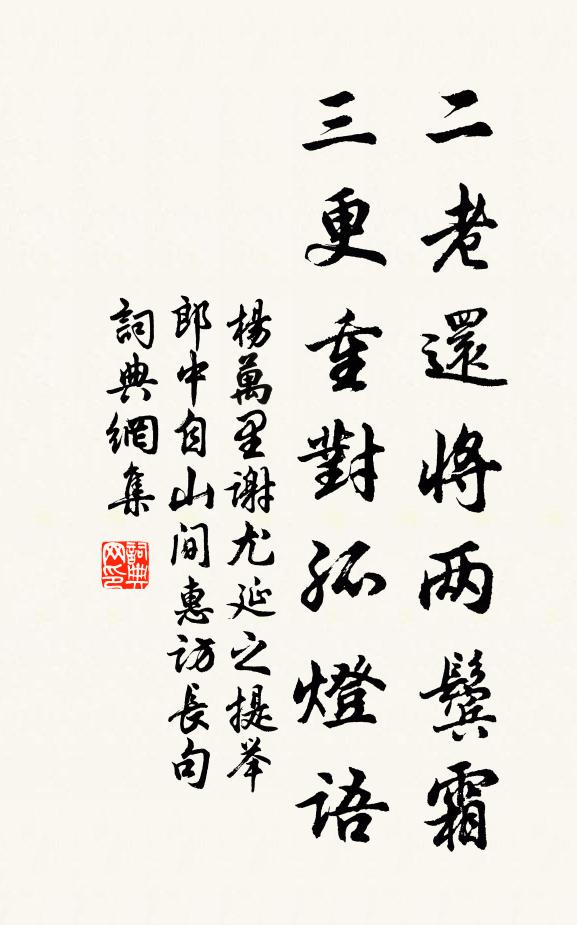 二老還將两鬢霜
三更重對孤燈語
楊萬里谢尤延之提举
郎中自山间惠访長句
詞典網集
詞典网印